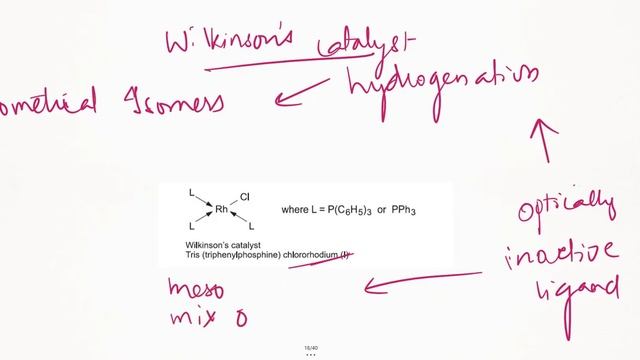 Wilkinson's catalyst
hydrogenation
ometrical Isomers
L Cl
Rh
L L
where L = P(C6H5)3 or PPh3
Wilkinson's catalyst
Tris (triphenylphosphine) chlororhodium (I)
optically
inactive
ligand
meso
mix o
18/40